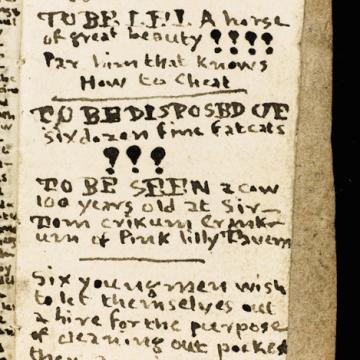 TO BE LET. A horse
of great beauty !!!!
Par him that knows
How to Cheat
TO BE DISPOSED OF
six dozen fine fat cats
???
TO BE SEEN a cow
100 years old at Sir
Tom crikum Ermkr
urn of Pink lilly Tavern
Six young men wish
to let themselves out
a hire for the purpose
of cleaning out pockets